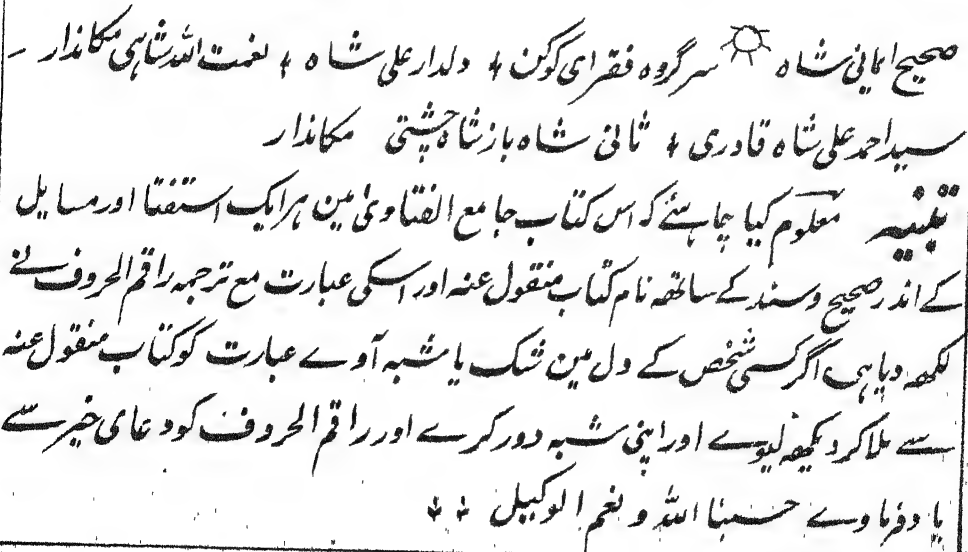 صحیح امانی شاہ سر گروہ فقرای کوکن + دلدار علی شاہ + نعمت اللہ شاہی مکاندار ۔
سید احمد علی شاہ قادری + ثانی شاہ باز شاہ چشتی مکاندار
تنبیہ معلوم کیا چاہئے کہ اس کتاب جامع الفتاویٰ مین ہر ایک استفتا اور مسایل
کے اندر صحیح و سند کے ساتھہ نام کتاب منقول عنہ اور اسکی عبارت مع ترجمہ راقم الحروف نے
لکھہ دیا ہی اگر کسی شخص کے دل مین شک یا شبہ آوے عبارت کو کتاب منقول عنہ
سے ملا کر دیکھہ لیوے اور اپنی شبہ دور کرے اور راقم الحروف کو دعای خیر سے
یاد فرماوے حسبنا اللہ و نعم الوکیل